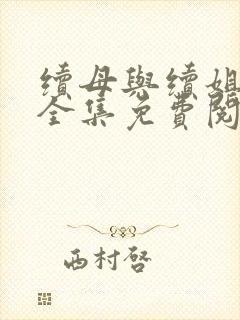 續母與續姐
全集免費閱
西村啓